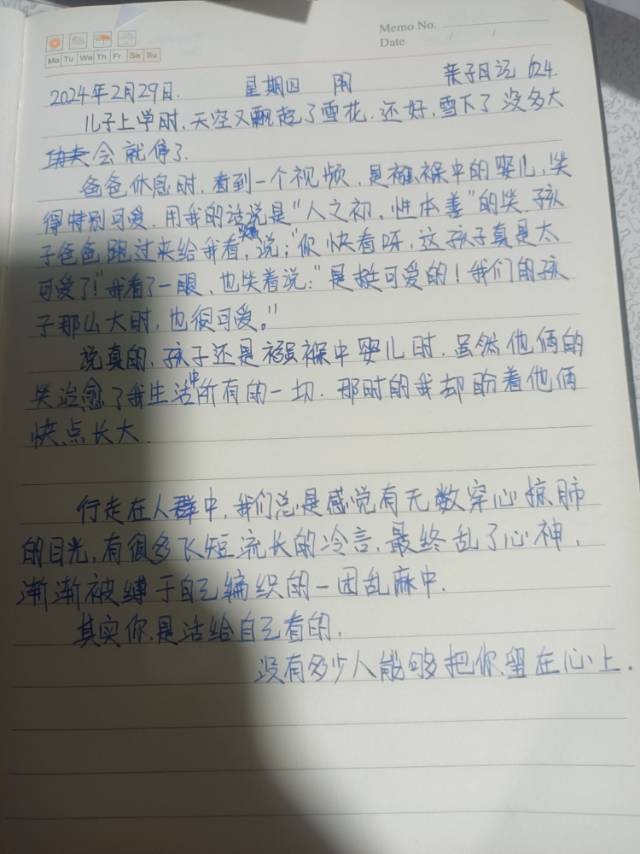 Memo No.
Date
Mo Tu We Th Fr Sa Su
2024年2月29日. 星期四 阴 亲子日记 624.
儿子上学时,天空又飘起了雪花.还好,雪下了没多大
会就停了.
爸爸休息时,看到一个视频,是襁褓中的婴儿,笑
得特别可爱.用我的话说是"人之初,性本善"的笑.孩
子爸爸跑过来给我看,说:"你快看呀,这孩子真是太
可爱了!"我看了一眼,也笑着说:"是挺可爱的!我们的孩
子那么大时,也很可爱。"
说真的,孩子还是襁褓中婴儿时.虽然他俩的
笑治愈了我生活中所有的一切.那时的我却盼着他俩
快点长大.
行走在人群中,我们总是感觉有无数穿心掠肺
的目光,有很多飞短流长的冷言,最终乱了心神,
渐渐被缚于自己编织的一团乱麻中.
其实你是活给自己看的,
没有多少人能够把你留在心上.